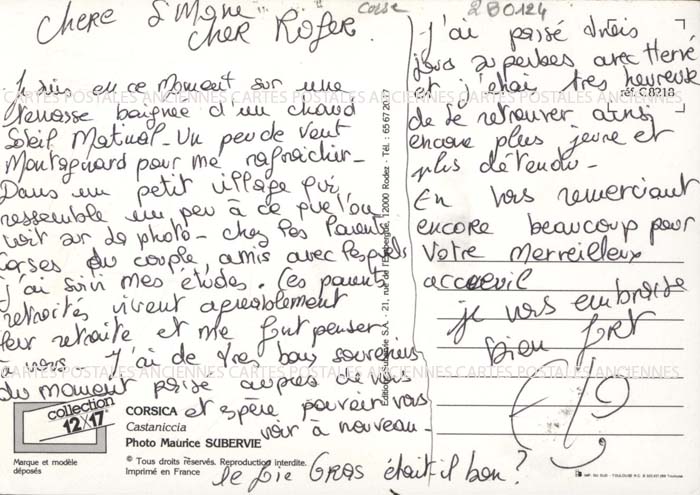 Corse
2B0124
Chère Simone
Cher Roger.
Je suis en ce moment sur une
terrasse baignée d'un chaud
Soleil Matinal - Un peu de Vent
Montagnard pour me rafraichir -
Dans un petit village qui
ressemble un peu à ce que l'on
voit sur la photo - chez les Parents
Corses du couple, amis avec lesquels
j'ai suivi mes études. Ces parents
retraités vivent agréablement
leur retraite et me font penser
à vous J'ai de très bons souvenirs
du moment passé auprès de vous
et espère pouvoir vous
voir à nouveau -
le foie GRAS était il bon ?
J'ai passé trois
jours superbes avec Hervé
et j'étais très heureuse
de le retrouver ainsi
encore plus jeune et
plus détendu -
En vous remerciant
encore beaucoup pour
Votre Merveilleux
accueil
je vous embrasse
bien fort
réf. C 8218
Éditions Subervie S.A. - 21, rue de l'Embergue, 12000 Rodez - Tél. : 65 67 20 17
collection
12x17
Marque et modèle
déposés
CORSICA
Castaniccia
Photo Maurice SUBERVIE
© Tous droits réservés. Reproduction interdite.
Imprimé en France
CARTES POSTALES ANCIENNES CARTES POSTALES ANCIENNES CARTES POSTALES ANCIENNES
CARTES POSTALES ANCIENNES CARTES POSTALES ANCIENNES CARTES POSTALES ANCIENNES